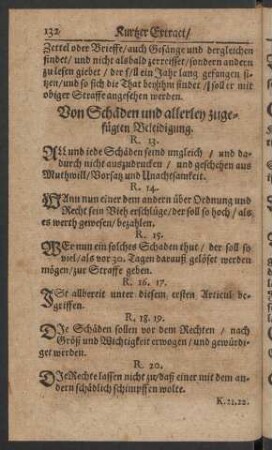 132 Kurtzer Extract/
Zettel oder Brieffe/ auch Gesänge und dergleichen
findet/ und nicht alsbald zerreisset/ sondern andern
zu lesen giebet/ der soll ein Jahr lang gefangen si-
tzen/ und so sich die That berühm findet/ soll er mit
obiger Straffe angesehen werden.
Von Schäden und allerley zuge-
fügten Beleidigung.
R. 13.
All und iede Schäden seind ungleich/ und da-
durch nicht auszudrucken/ und geschehen aus
Muthwill/ Vorsatz und Unachtsamkeit.
R. 14.
Wann nun einer dem andern über Ordnung und
Recht sein Vieh erschlüge/ der soll so hoch/ als
es werth gewesen/ bezahlen.
R. 15.
Wer nun ein solches Schaden thut/ der soll so
viel/ als vor 30. Tagen darauß gelöset werden
mögen/ zur Straffe geben.
R. 16. 17.
Ist allbereit unter diesem ersten Articul be-
griffen.
R. 18. 19.
Die Schäden sollen vor dem Rechten/ nach
Größ und Wichtigkeit erwogen/ und gewürdi-
get werden.
R. 20.
Die Rechte lassen nicht zu/ daß einer mit dem an-
dern schädlich schimpffen wolte.
R. 21. 22.